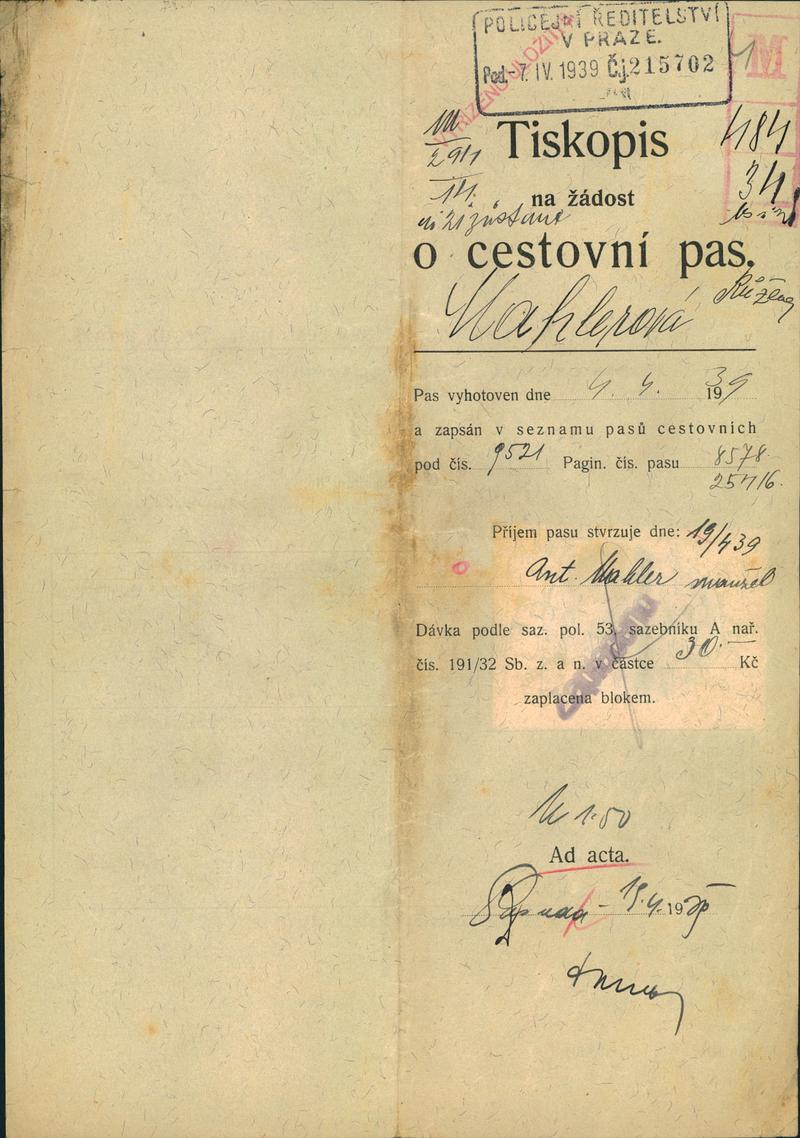 POLICEJNÍ ŘEDITELSTVÍ
V PRAZE.
Pod. -7. IV. 1939 Čj. 215702
M
484
34
Tiskopis
na žádost
o cestovní pas.
Mahlerová Růžena
Pas vyhotoven dne 4. 4. 1939
a zapsán v seznamu pasů cestovních
pod čís. 9521 Pagin. čís. pasu 8578
25716
Příjem pasu stvrzuje dne: 19/4 39
Ant. Mahler manžel
Dávka podle saz. pol. 53, sazebníku A nař.
čís. 191/32 Sb. z. a n. v částce 30.- Kč
zaplacena blokem.
1·50
Ad acta.
19